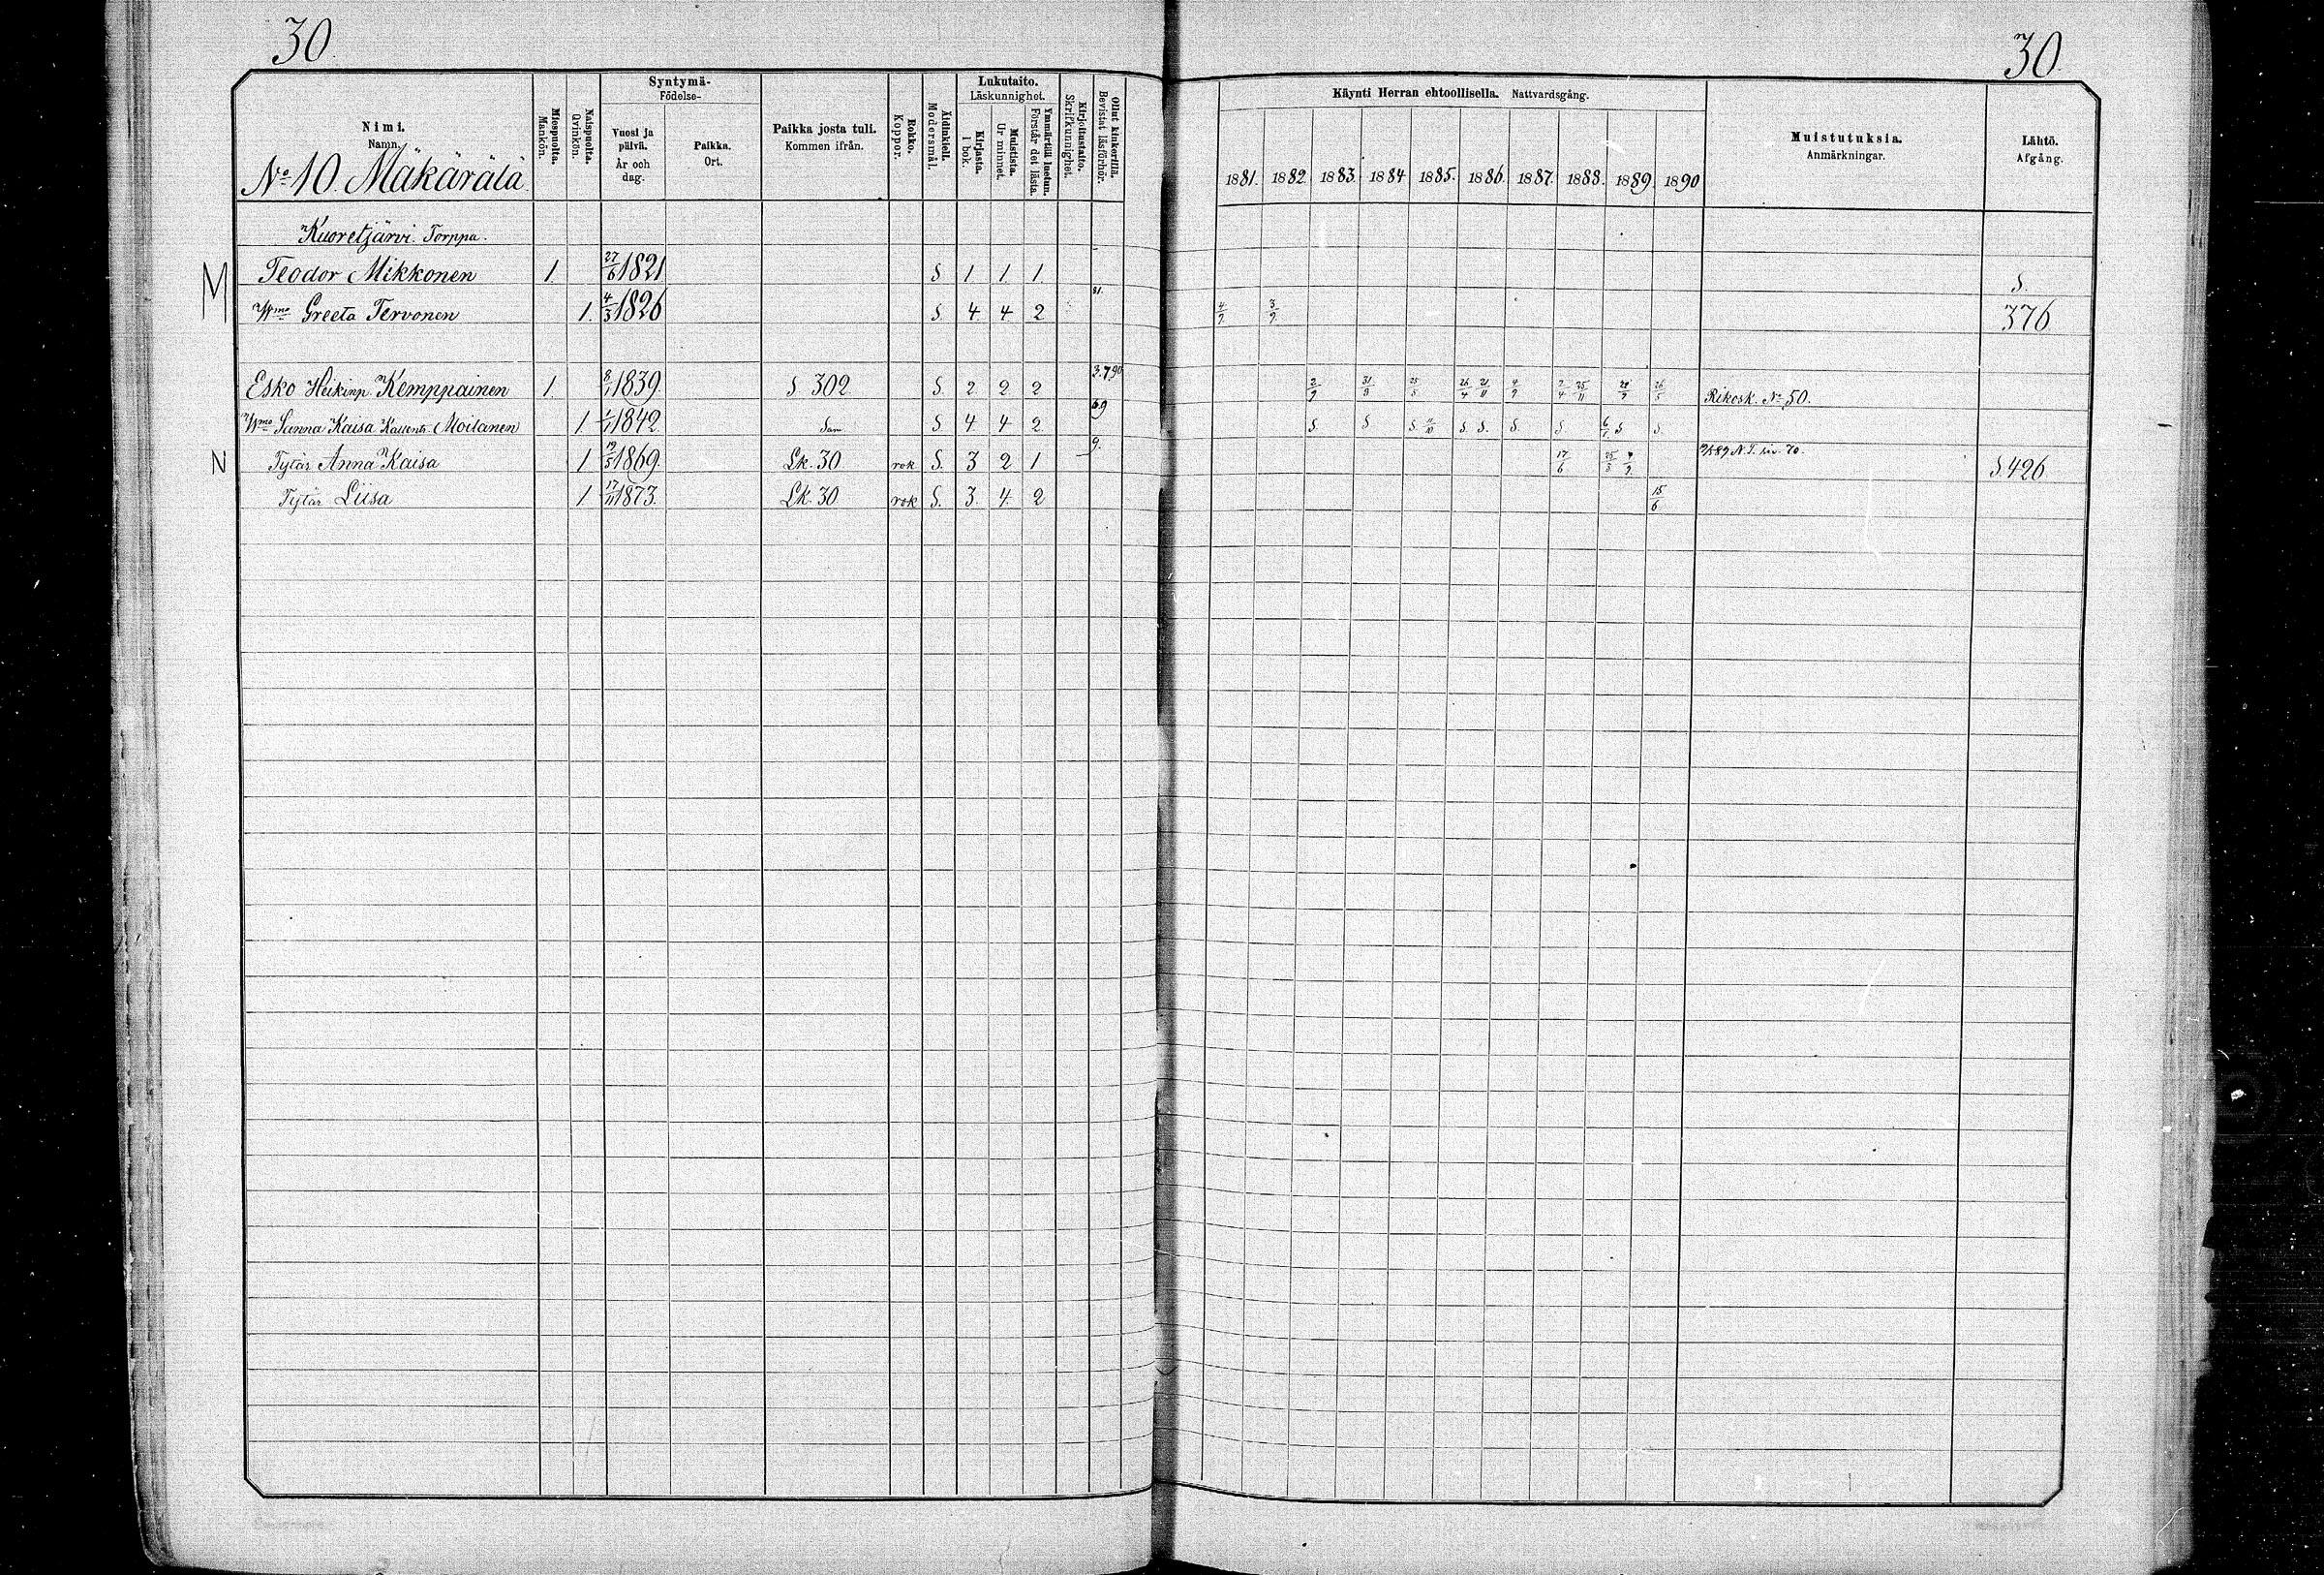 30. 30.
Nimi. Namn. Miespuolta. Mankön. Naispuolta. Qvinkön. Syntymä- Födelse- Vuosi ja päivä. År och dag. Paikka. Ort. Paikka josta tuli. Kommen ifrån. Rokko. Koppor. Äidinkieli. Modersmål. Lukutaito. Läskunnighet. Kirjasta. I bok. Muistista. Ur minnet. Ymmärtää luetun. Förstår det lästa. Kirjoitustaito. Skrifkunnighet. Ollut kinkerillä. Bevistat läsförhör. Käynti Herran ehtoollisella. Nattvardsgång. 1881. 1882. 1883. 1884. 1885. 1886. 1887. 1888. 1889. 1890 Muistutuksia. Anmärkningar. Lähtö. Afgång.
No 10. Mäkärälä
Kuoretjärvi. Torppa.
M Teodor Mikkonen 1. 27/6 1821 S 1 1 1. S.
Wmo Greeta Tervonen 1. 4/3 1826 S 4 4 2 81. 4/9 3/9 376
Esko Heikinp. Kemppainen 1. 8/1 1839. S. 302 S. 2 2 2 3.7.90 2/9 31/8 25/5 26/4 21/11 4/9 2/4 25/11 29/9 26/5 Rikosk. No 50.
Wmo Sanna Kaisa Moilanen 1. 1/1 1842. Sam S 4 4 2 69 S. S S. 11/10 S. S. S. S 6/1 S S.
N Tytär Anna Kaisa 1 19/5 1869. Lk. 30 rok S. 3 2 1 9. 17/6 25/3 9/9 89 N.T. siv. 70. S 426.
Tytär Liisa 1. 17/11 1873. Lk. 30 rok S. 3. 4. 2 15/6